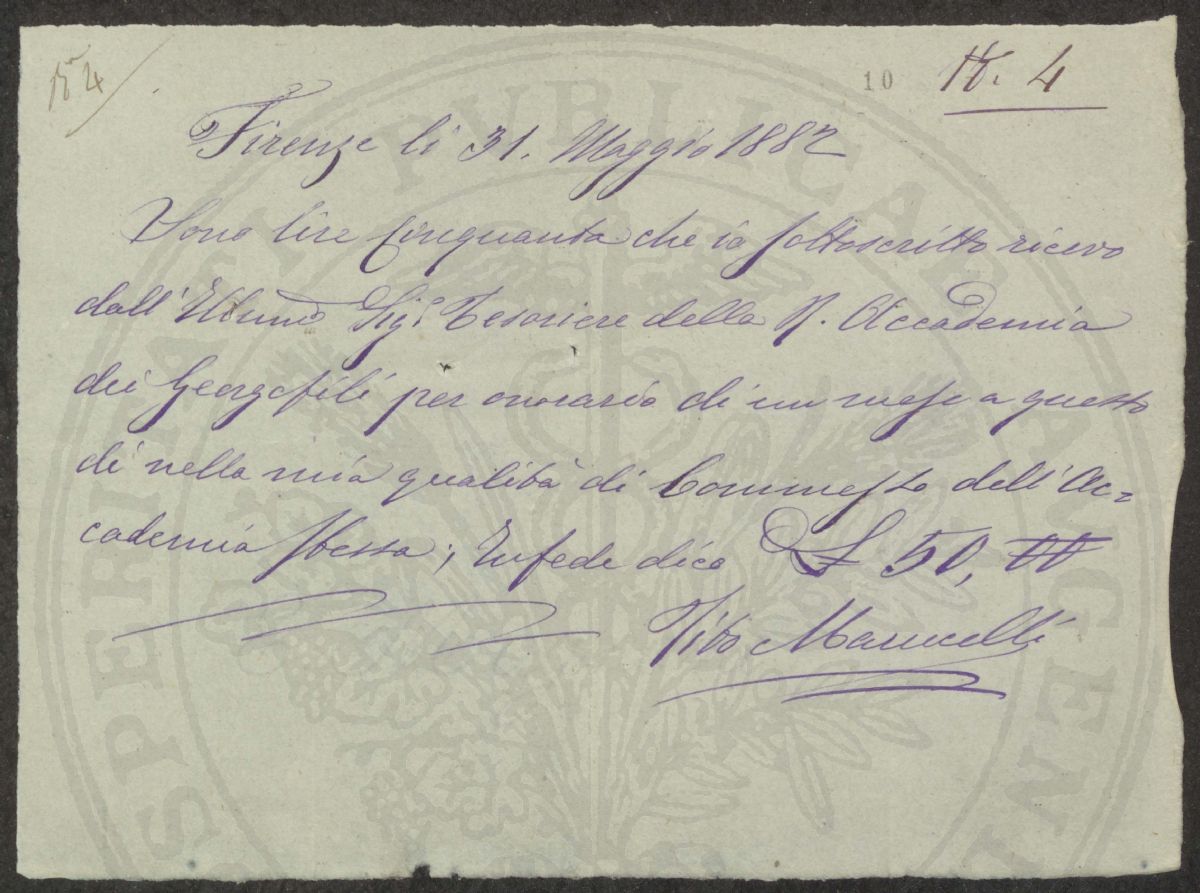 154
10 N. 4
Firenze li 31. Maggio 1882
Sono lire Cinquanta che io sottoscritto ricevo
dall' Sigr Tesoriere della R. Accademia
dei Georgofili per onorario di un mese a questo
dì nella mia qualità di Commesso dell' Ac=
cademia stessa; In fede dico £ 50,
Tito Marucelli
PROSPERITATI PUBLICAE AUGENDAE